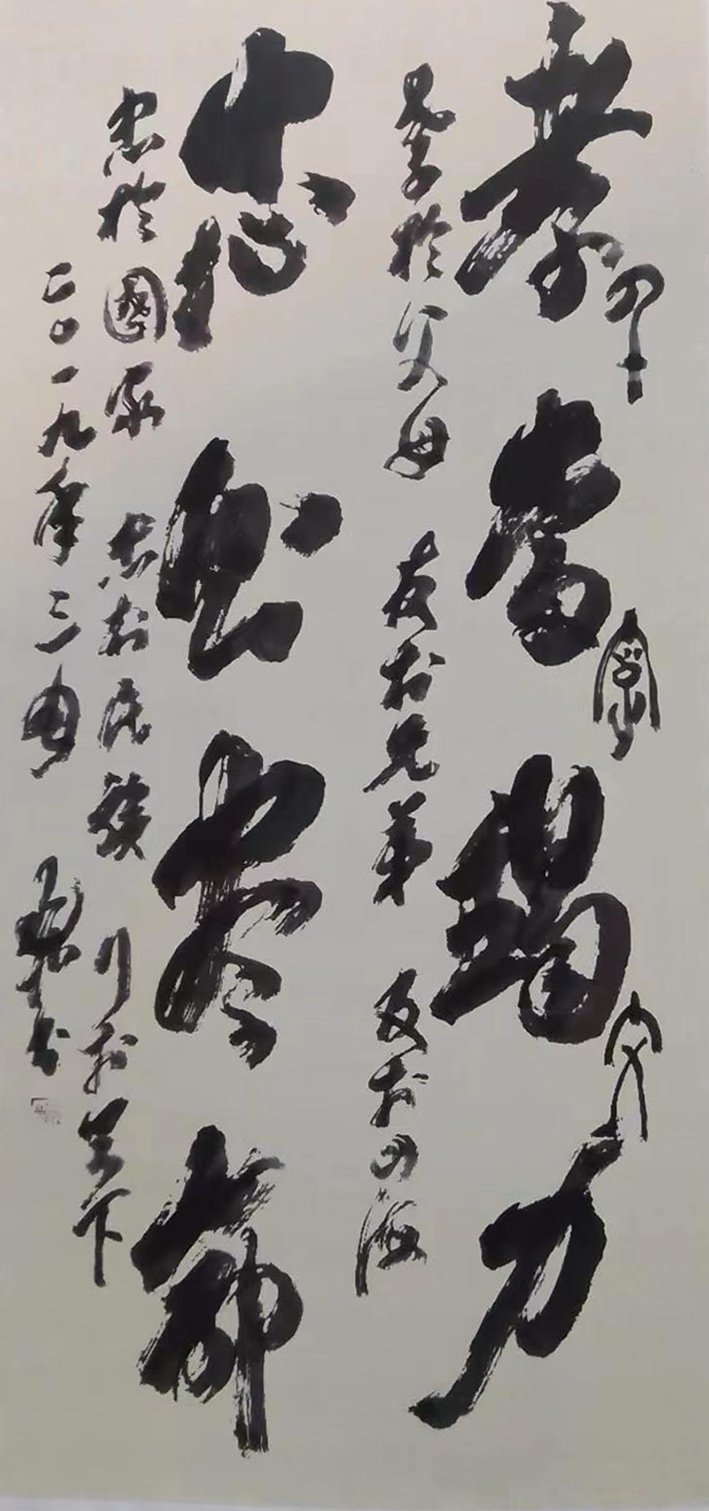 孝當竭力
孝於父母 友於兄弟 及於四海
忠則盡命
忠於國家 於民族 行於天下
二〇一九年三月 書